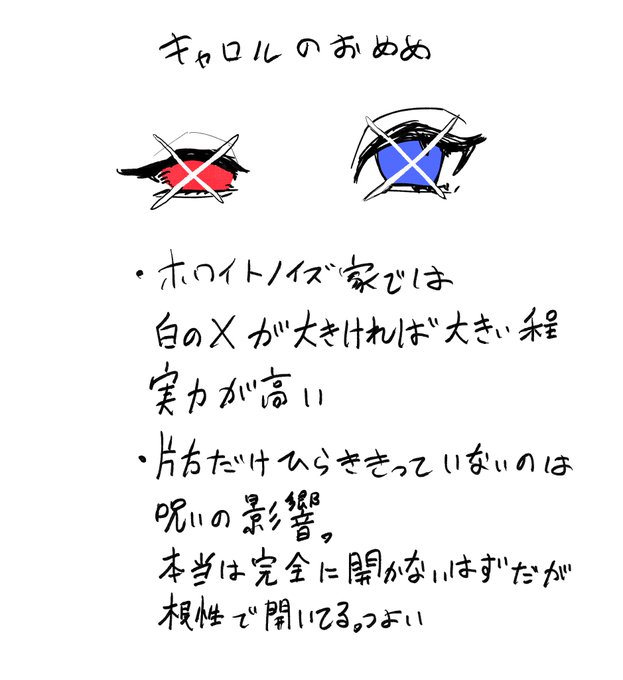 キャロルのおめめ
・ホワイトノイズ家では
白のXが大きければ大きい程
実力が高い
・片方だけひらききっていないのは
呪いの影響。
本当は完全に開かないはずだが
根性で開いてる。つよい